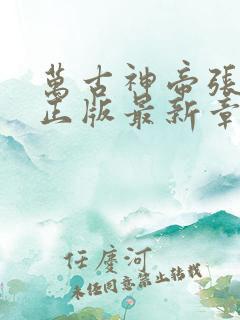 萬古神帝張
正版最新章
任慶河
未经同意禁止转载